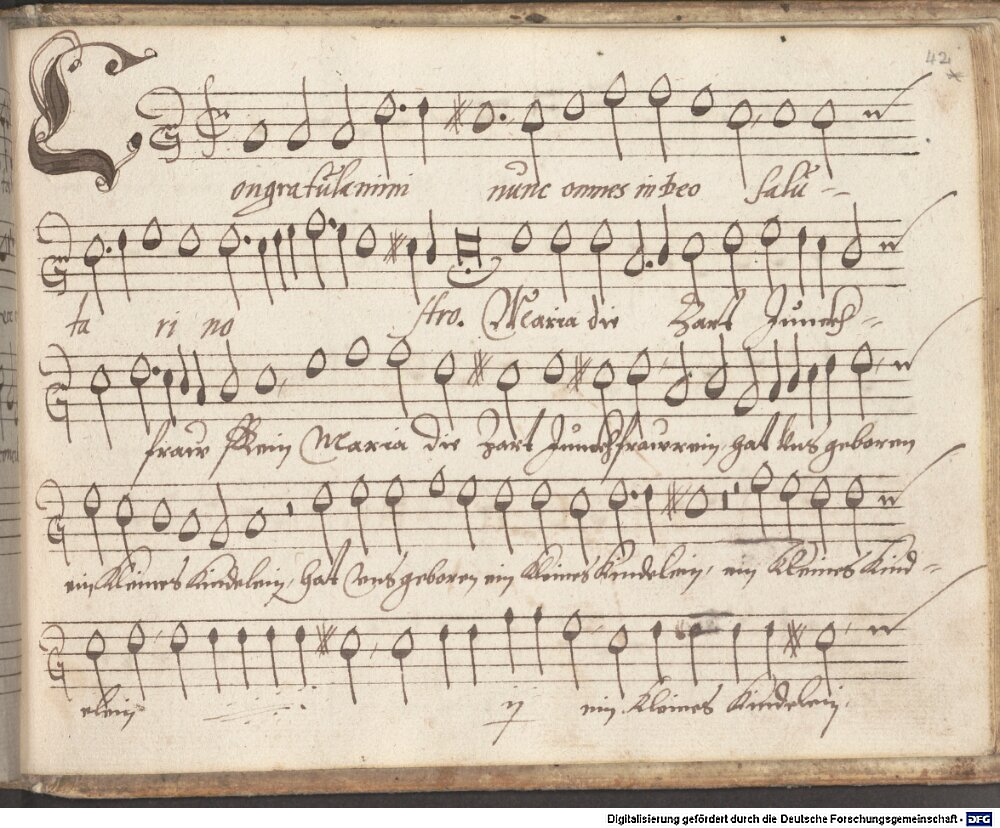 42
Congratulamini nunc omnes in deo salu-
ta ri no stro. Maria die Zart Junckh-
fraw Maria die Zart Junckhfraw rein, hat vns geboren
ein Kleines Kindelein, hat vns geboren ein Kleines Kindelein, ein Kleines Kind-
elein ij ein Kleines Kindelein.
Digitalisierung gefördert durch die Deutsche Forschungsgemeinschaft - DFG